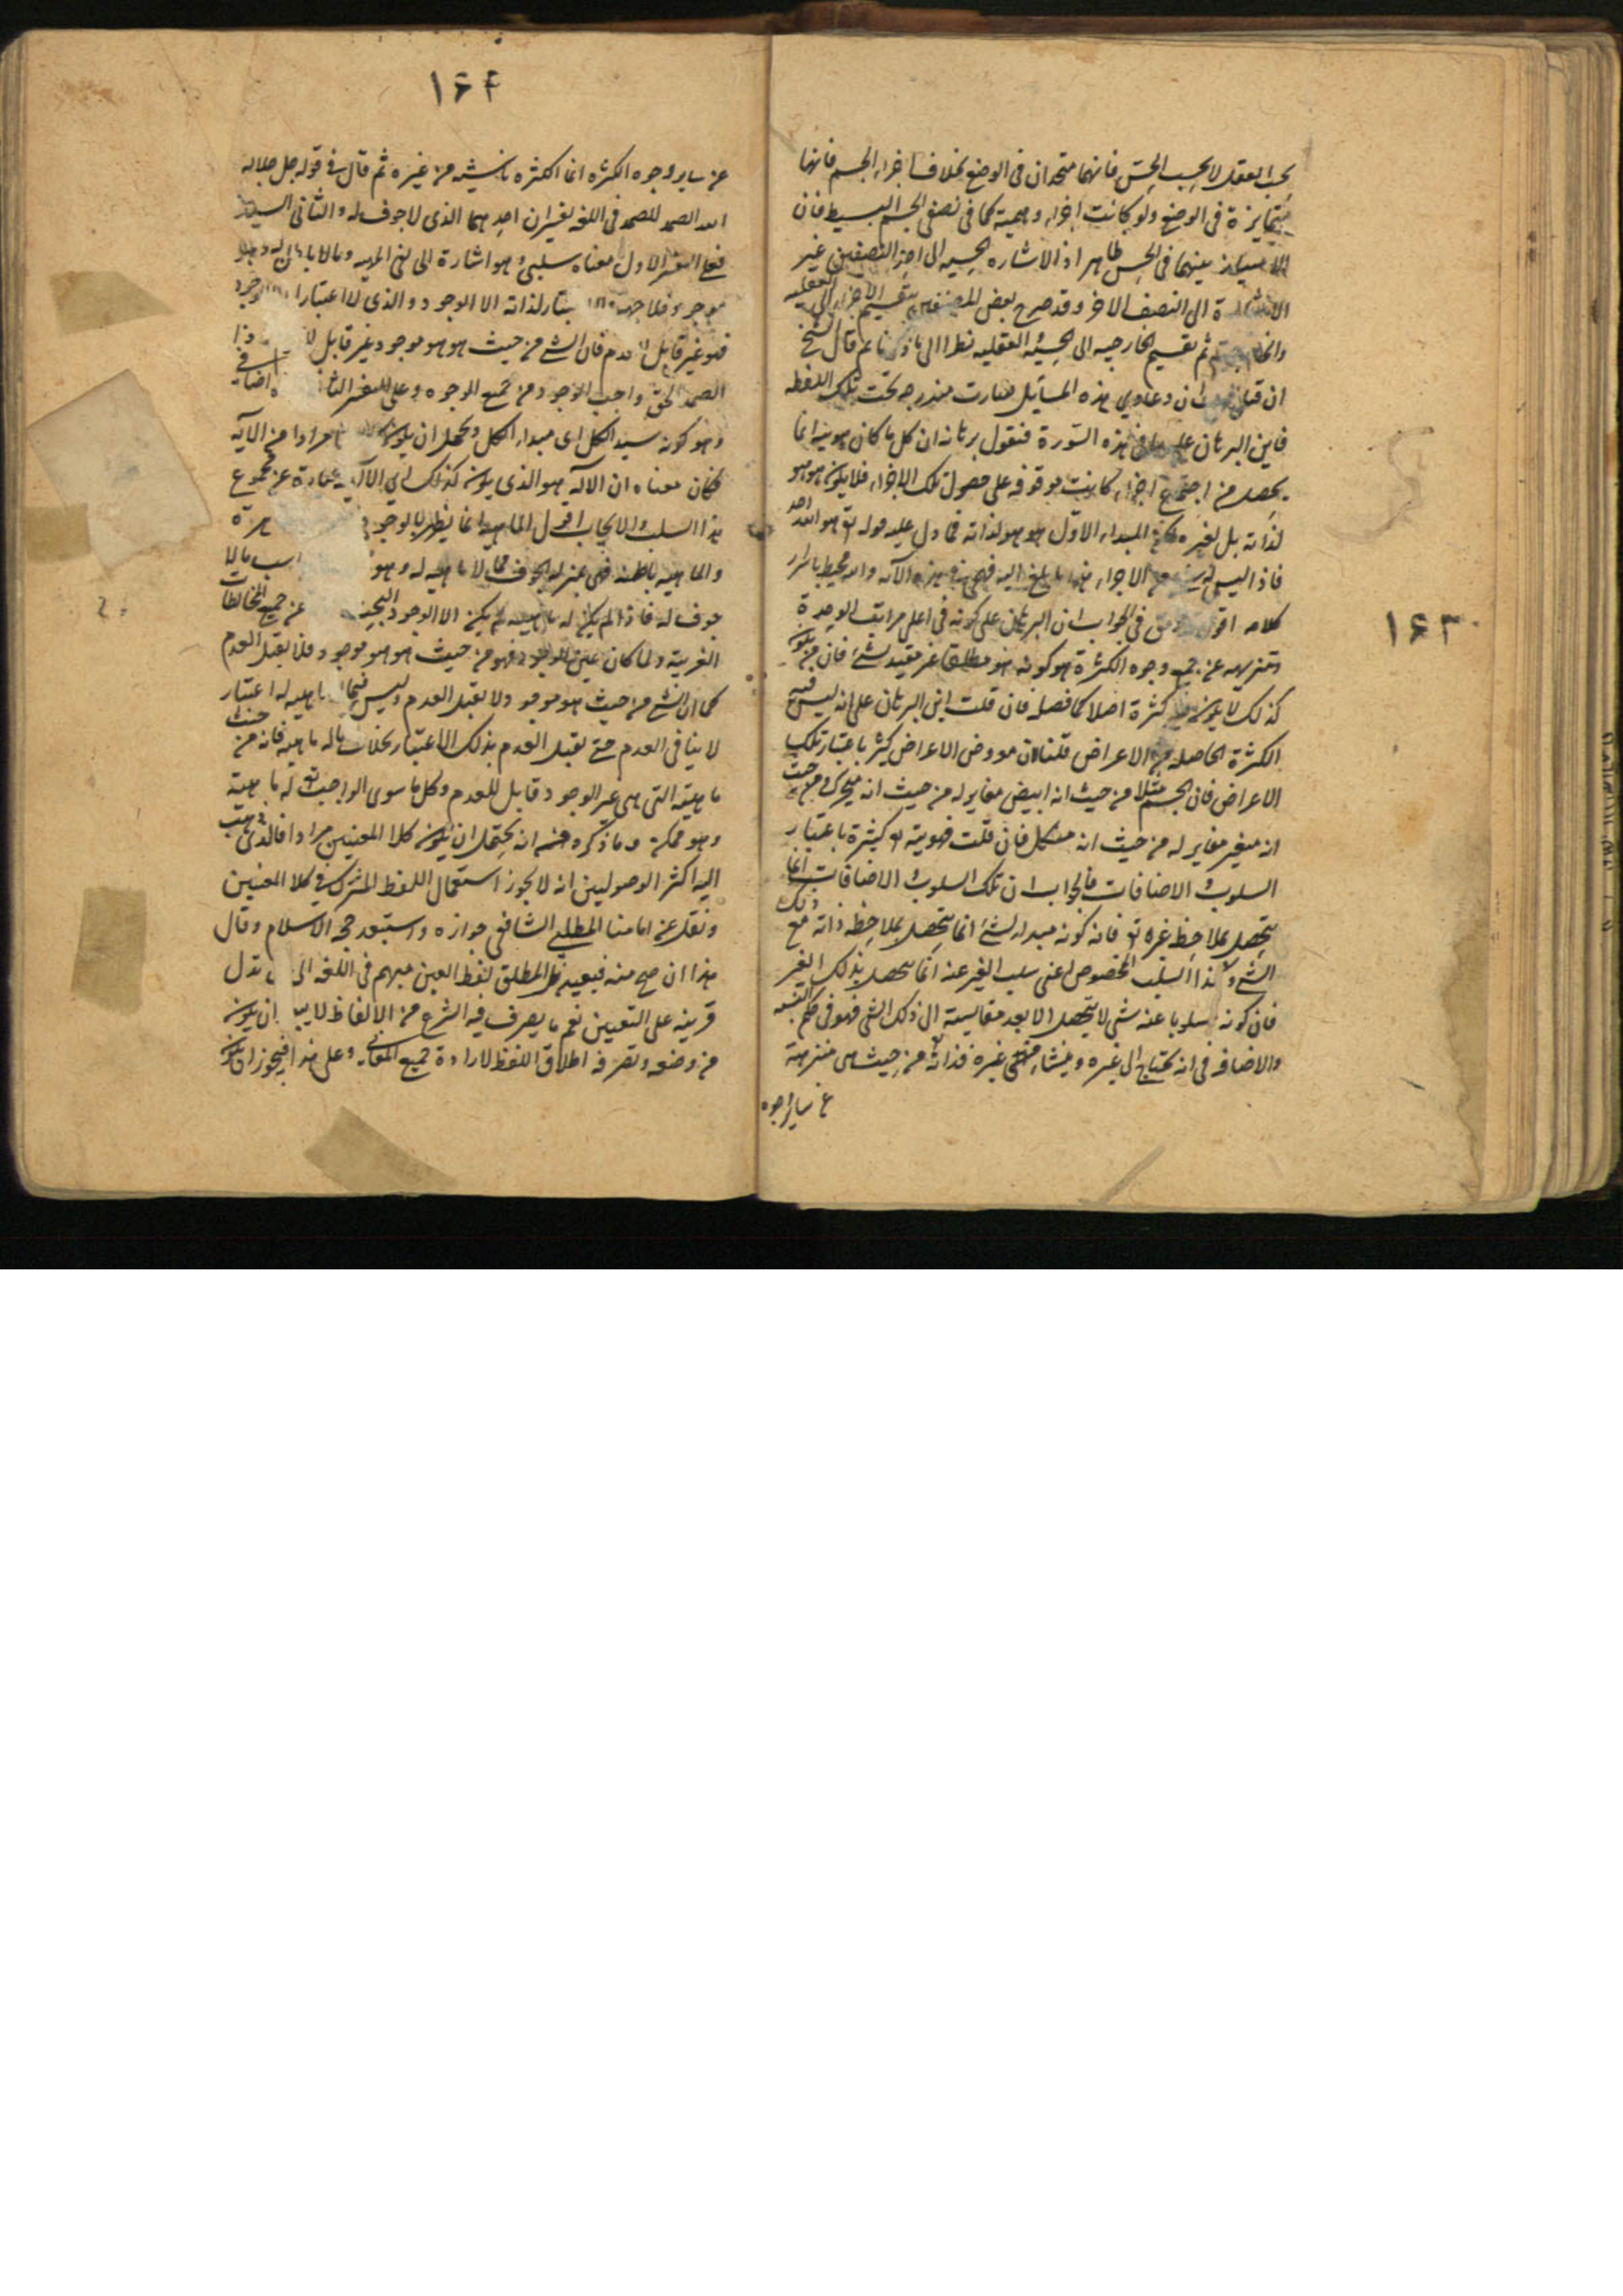 بحسب العقل لا بحسب الحس فانهما متحدان فى الوضع بخلاف اجزاء الجسم فانها
متمايزة فى الوضع ولو كانت اجزاء وهمية كما فى نصفى الجسم البسيط فان
الامتياز بينهما فى الحس ظاهر اذ الاشاره الحسيه الى احد النصفين غير
الاشارة الى النصف الاخر وقد صرح بعض المصنفين بتقسيم الاجزاء الى العقليه
ثم تقسيم الخارجيه الى الحسيه العقليه نظرا الى ما ذكرنا ثم قال الشيخ
ان قيل ان دعاوى هذه المسايل صارت مندرجه تحت تلك اللفظه
فاين البرهان عليها فى هذه السورة فنقول برهانه ان كل ما كان هويته انما
يحصل من اجتماع اجزاء كانت موقوفه على حصول تلك الاجزاء فلا يكون هو هو
لذاته بل لغيره لكن المبداء الاول هو هو لذاته كما دل عليه قوله تع هو الله احد
فاذا ليس له شئ من الاجزاء هذا ما بلغ اليه فهمى فى هذه الآيه والله محيط باسرار
كلامه اقول فى الجواب ان البرهان على كونه فى اعلى مراتب الوحدة
وتنزيهه عن جميع وجوه الكثرة هو كونه هو مطلقا غير مقيد بشئ فان من يكون
كذلك لا يكون فيه كثرة اصلا كما فصله فان قلت اين البرهان على انه ليس فيه
الكثرة الحاصله من الاعراض قلنا لان معروض الاعراض كثير باعتبار تلك
الاعراض فان الجسم مثلا من حيث انه ابيض مغاير له من حيث انه متحرك ومن حيث
انه متغير مغاير له من حيث انه متشكل فان قلت فهويته تع كثيرة باعتبار
السلوب والاضافات فالجواب ان تلك السلوب والاضافات انما
يتحصل بملاحظة غيره تع فانه كونه مبداء لشئ انما يتحصل بملاحظه ذاته مع ذلك
الشئ وكذا السلب المخصوص اعنى سلب الغير عنه انما يتحصل بذلك الغير
فان كونه مسلوبا عنه شى لا يتحصل الا بعد مقايسته الى ذلك الشى فهو فى حكم النسبه
والاضافه فى انه يحتاج الى غيره ومنشأه غيره فذاته من حيث هى منزهة
عن ساير وجوه
١۶٣
١۶۴
عن ساير وجوه الكثره انما الكثره ناشيه من غيره ثم قال فى قوله جل جلاله
الله الصمد للصمد فى اللغه تفسيران احدهما الذى لا جوف له والثانى السيد
فعلى التفسير الاول معناه سلبى وهو اشارة الى نفى الماهيه
موجود فلا جهة ولا اعتبار لذاته الا الوجود والذى لا اعتبار له الا الوجود
فهو غير قابل للعدم فان الشئ من حيث هو هو موجود غير قابل
الصمد الحق واجب الوجود من جميع الوجوه وعلى التفسير الثانى معناه اضافى
وهو كونه سيد الكل اى مبداء الكل ويحتمل ان يكون كلاهما مرادا من الآيه
فكان معناه ان الآله هو الذى يكون كذلك اى الآلهيه عبارة عن مجموع
هذا السلب والايجاب اقول الماهيه انما يظهر بالوجود
والماهيه باطنه فهى بمنزله الجوف فما لا ماهيه له
جوف له فاذا لم يكن له ماهيه لم يكن الا الوجود البحت عن جميع المخالطات
الغريبة ولما كان عين الوجود فهو من حيث هو هو موجود فلا يقبل العدم
كما ان الشئ من حيث هو موجود لا يقبل العدم وليس ماهيه له اعتبار
لا ينافى العدم حتى يقبل العدم بذلك الاعتبار بخلاف ما له ماهيه فانه من حيث
ماهيته التى هى غير الوجود قابل للعدم وكل ما سوى الواجب تع له ماهية
وهو ممكنه وما ذكره من انه يحتمل ان يكون كلا المعنيين مرادا فالذى ذهب
اليه اكثر الاصوليين انه لا يجوز استعمال اللفظ المشترك فى كلا المعنيين
ونقل عن امامنا المطلبى الشافعى جوازه واستبعد حجة الاسلام وقال
هذا ان صح منه فبعيد لان المطلق لفظ العين مبهم فى اللغه الى ان تدل
قرينه على التعيين نعم ما يصرف فيه الشرع من الالفاظ لا يبعد ان يكون
من وضعه وتصرفه اطلاق اللفظ لارادة جميع المعانى وعلى هذا فيجوز ان يكون